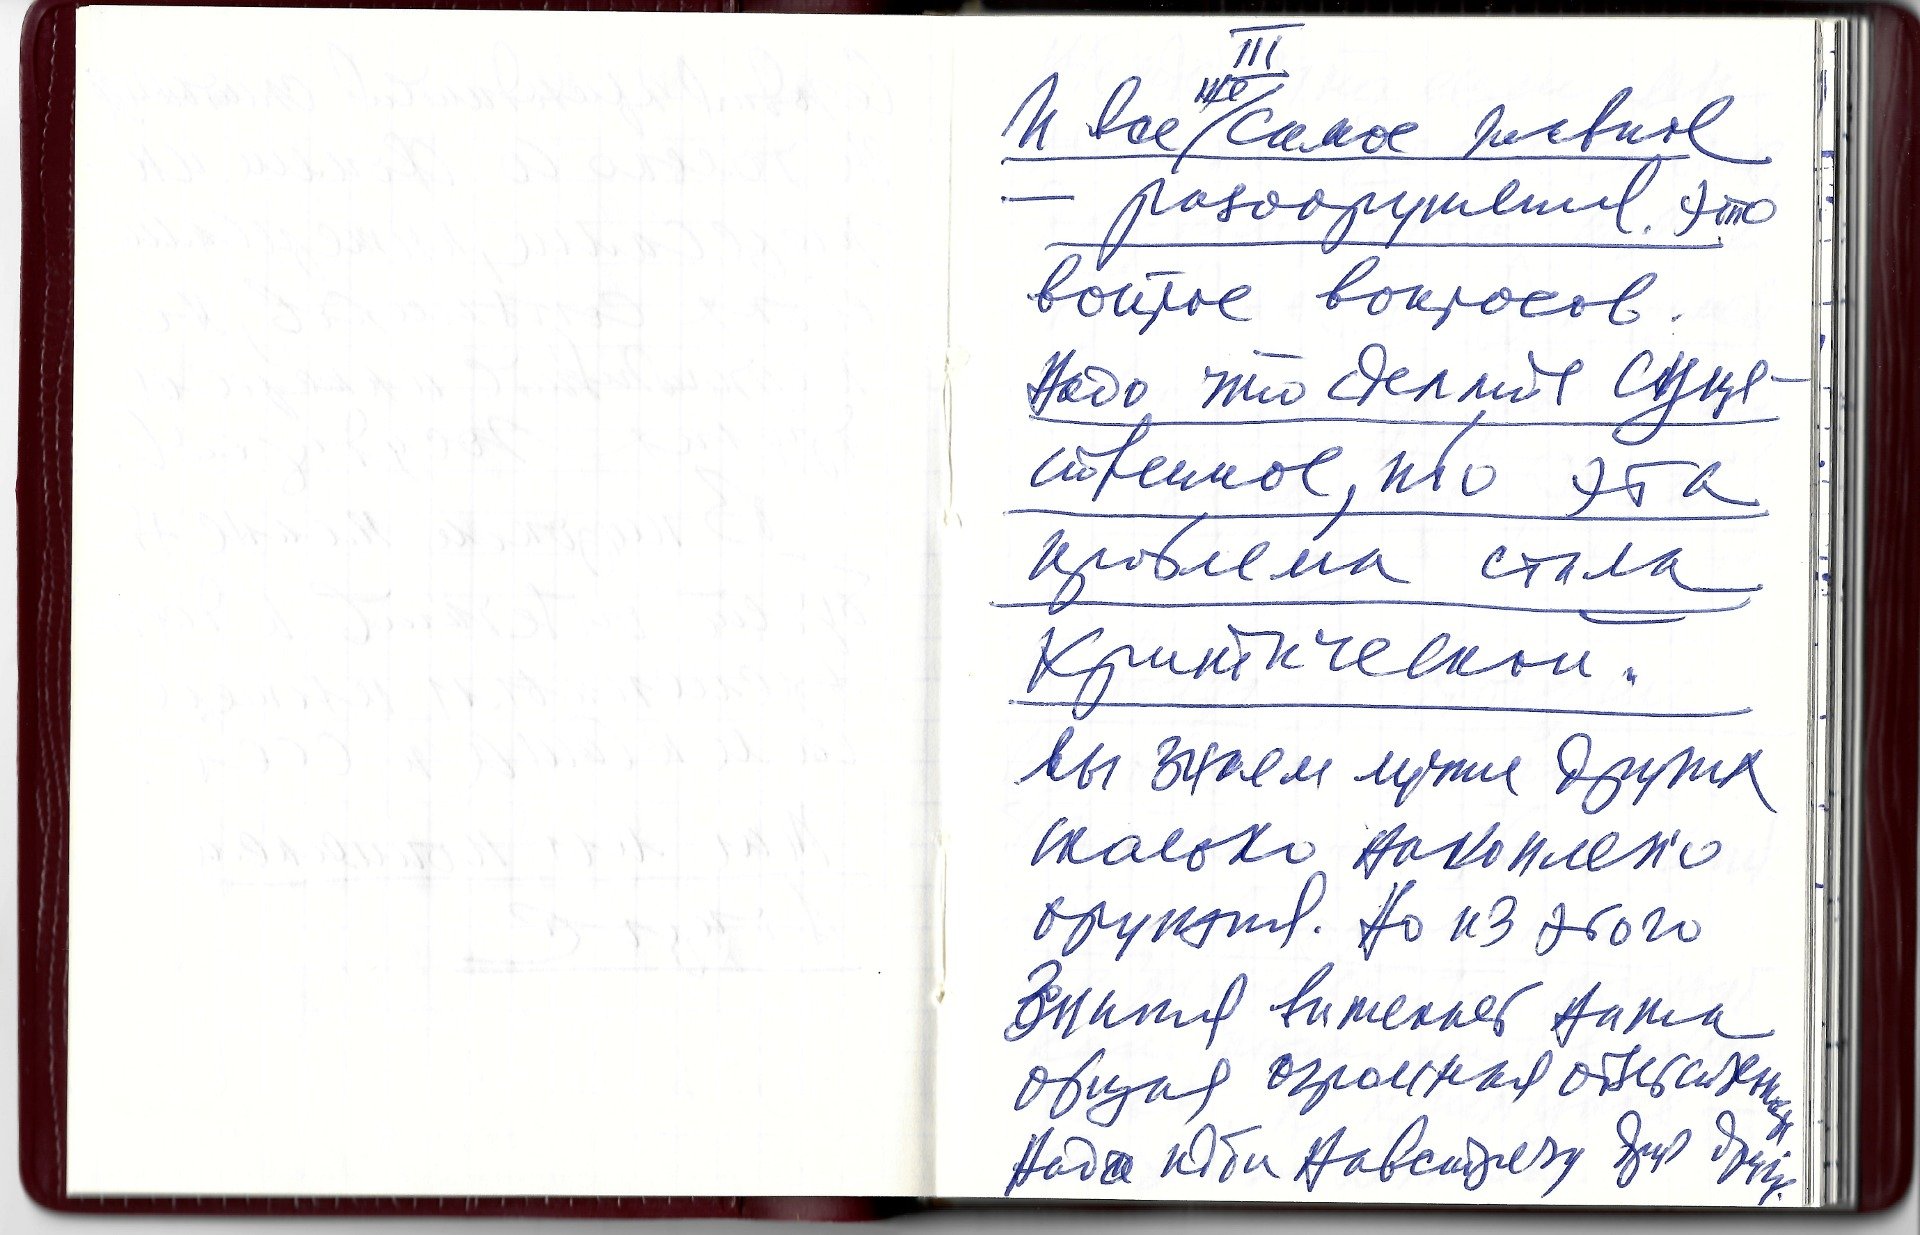 III
И все же самое главное
— разоружение. Это
вопрос вопросов.
Надо что сделать суще-
ственное, ибо эта
проблема стала
критической.
Мы знаем лучше других
сколько накоплено
оружия. Но из этого
знания вытекает наша
общая огромная ответственность
Надо идти навстречу друг другу.